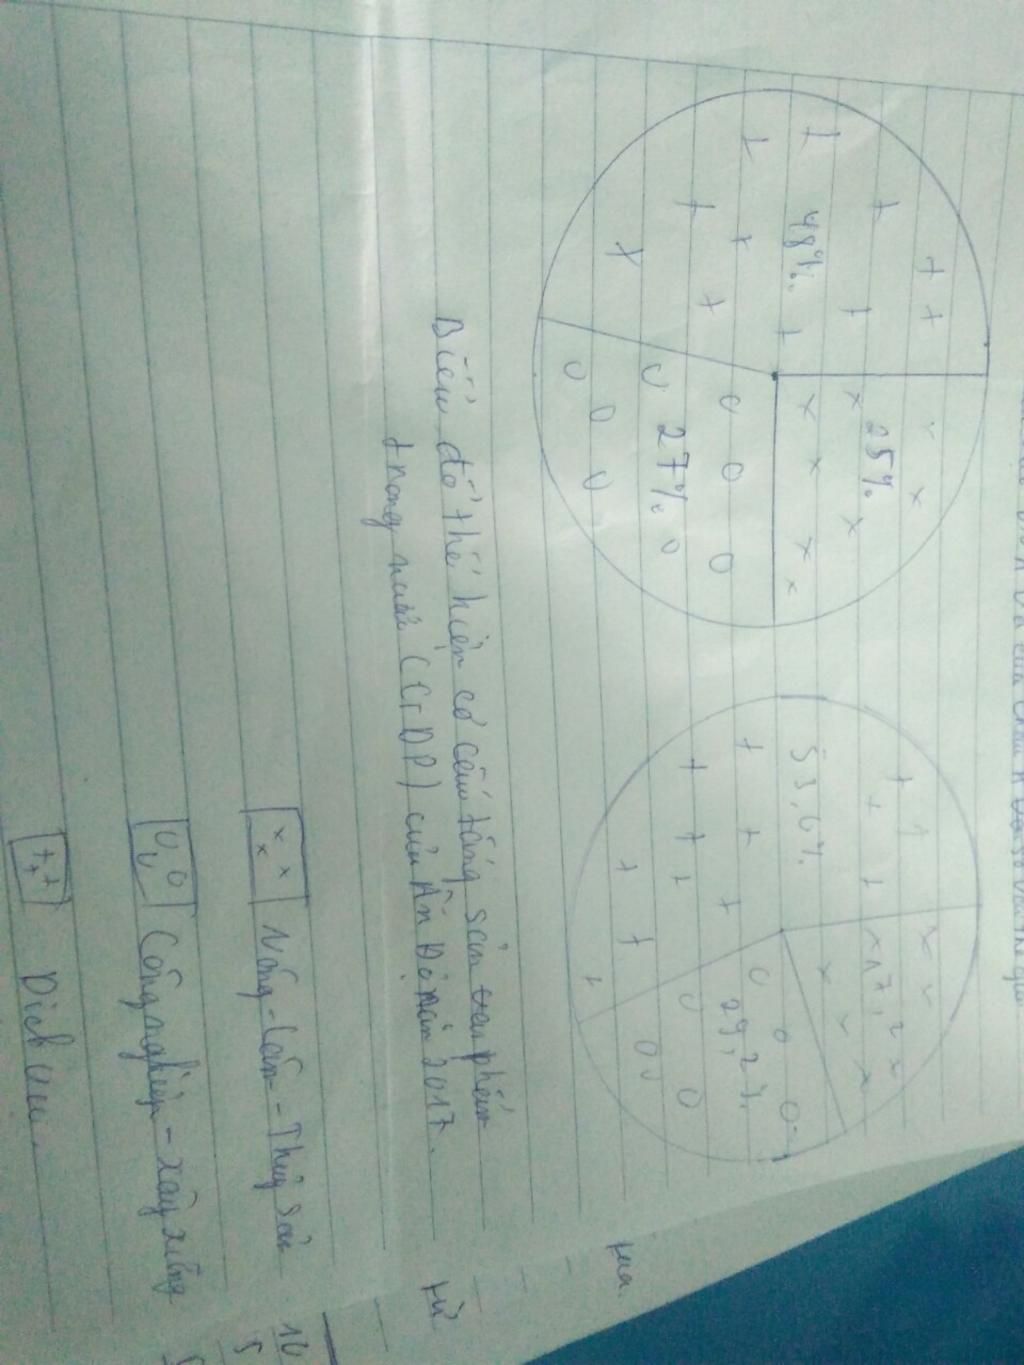 25%
48%
27%
17,2
53,6%
29,2%
Biểu đồ thể hiện cơ cấu tổng sản phẩm
trong nước (GDP) của Ấn Độ năm 2017.
Nông - Lâm - Thủy sản
Công nghiệp - Xây dựng
Dịch vụ.